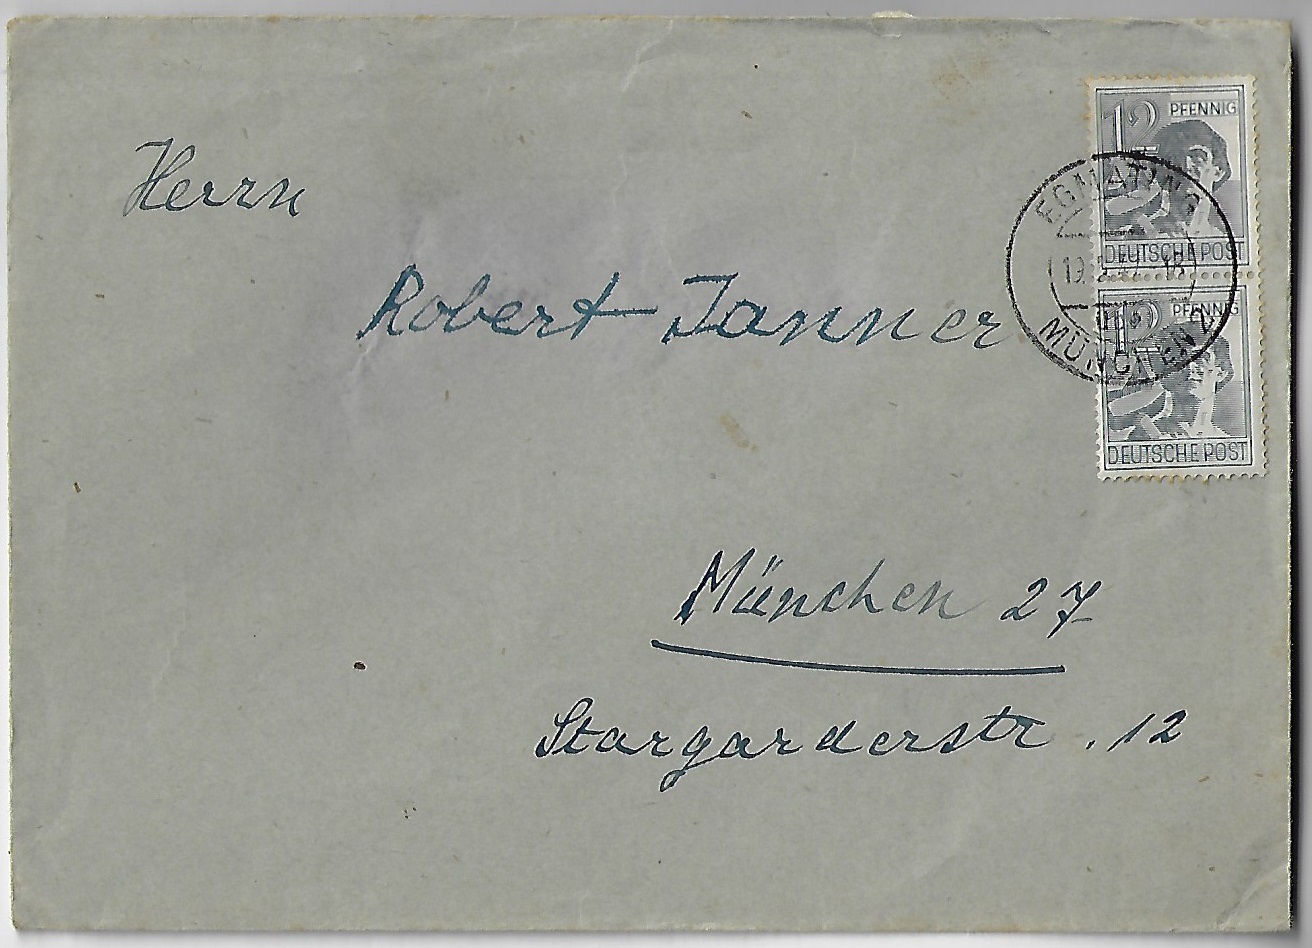 Herrn
Robert Janner
München 27
Stargarderstr. 12
12 PFENNIG
DEUTSCHE POST
12 PFENNIG
DEUTSCHE POST
EGMATING
MÜNCHEN 2